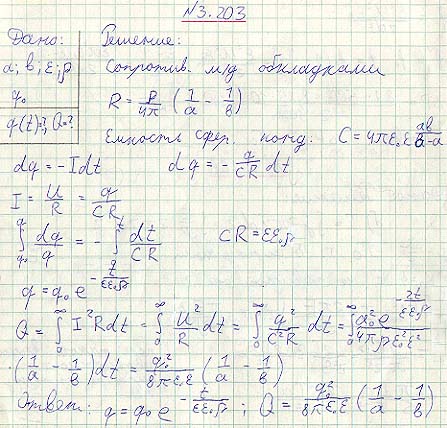 №3.203
Дано: Решение:
a; b; ε; ρ Сопротив. м/д обкладками
q₀ R = ρ/4π (1/a - 1/b)
q(t)=?; Q=? Емкость сфер. конд. C = 4πε₀ε ab/b-a
dq = -Idt dq = - q/CR dt
I = U/R = q/CR
∫_{q₀}^{q} dq/q = - ∫^{t} dt/CR CR = εε₀ρ
q = q₀ e^{-t/εε₀ρ}
Q = ∫_0^∞ I²Rdt = ∫_0^∞ U²/R dt = ∫_0^∞ q²/C²R dt = ∫_0^∞ q₀² e^{-2t/εε₀ρ}/4πρε₀²ε²
·(1/a - 1/b)dt = q₀²/8πε₀ε (1/a - 1/b)
Ответ: q = q₀ e^{-t/εε₀ρ}; Q = q₀²/8πε₀ε (1/a - 1/b)